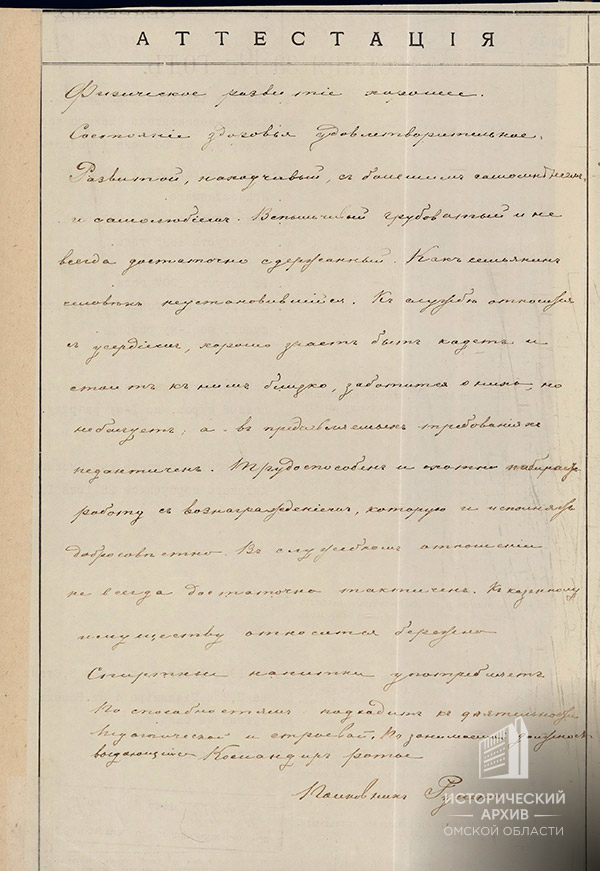 АТТЕСТАЦІЯ
Физическое развитіе хорошее.
Состояніе здоровья удовлетворительное.
Развитой, находчивый, съ большимъ самомнѣніемъ
и самолюбіемъ. Вспыльчивый грубоватый и не
всегда достаточно сдержанный. Какъ семьянинъ
человѣкъ неустановившійся. Къ службѣ относится
съ усердіемъ, хорошо знаетъ бытъ кадетъ и
стоитъ къ нимъ близко, заботится о нихъ, но
не балуетъ, а въ предъявляемыхъ требованіяхъ
педантиченъ. Трудоспособенъ и охотно набираетъ
работу съ вознагражденіемъ, которую и исполняетъ
добросовѣстно. Въ служебномъ отношеніи
не всегда достаточно тактиченъ. Къ казенному
имуществу относится бережно
Спиртные напитки употребляетъ
По способностямъ подходитъ къ дѣятельности
и строевой. По занимаемой должности
выдающійся Командиръ роты
Полковникъ
ИСТОРИЧЕСКИЙ
АРХИВ
ОМСКОЙ ОБЛАСТИ